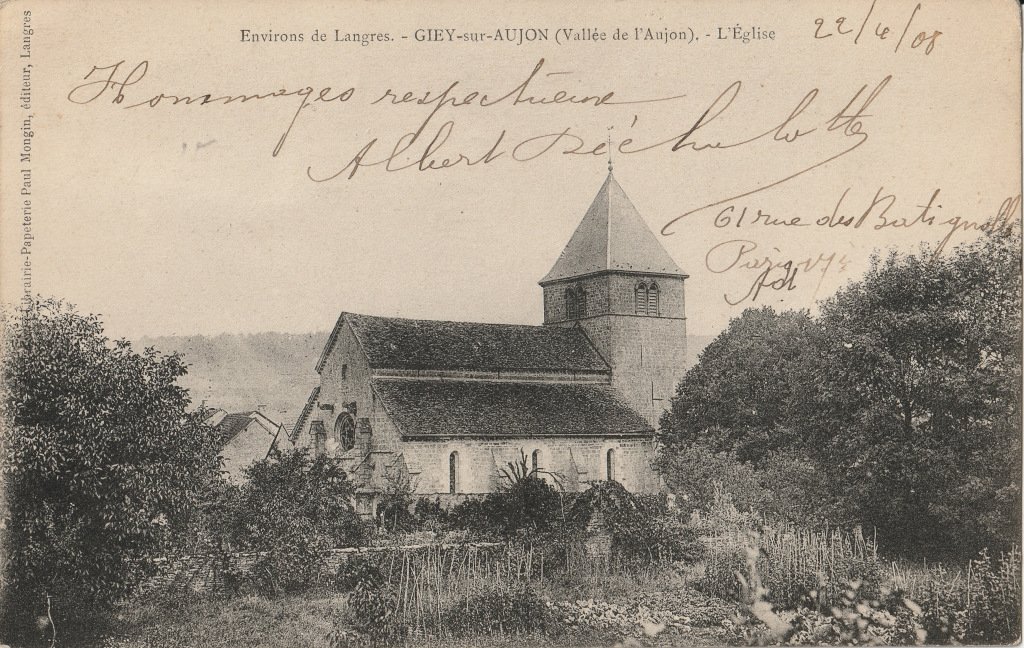 Environs de Langres. - GIEY-sur-AUJON (Vallée de l'Aujon). - L'Église
22/4/08
Hommages respectueux
Albert Péchulotte
61 rue des Batignolles
Paris 17e
Librairie-Papeterie Paul Mongin, éditeur, Langres